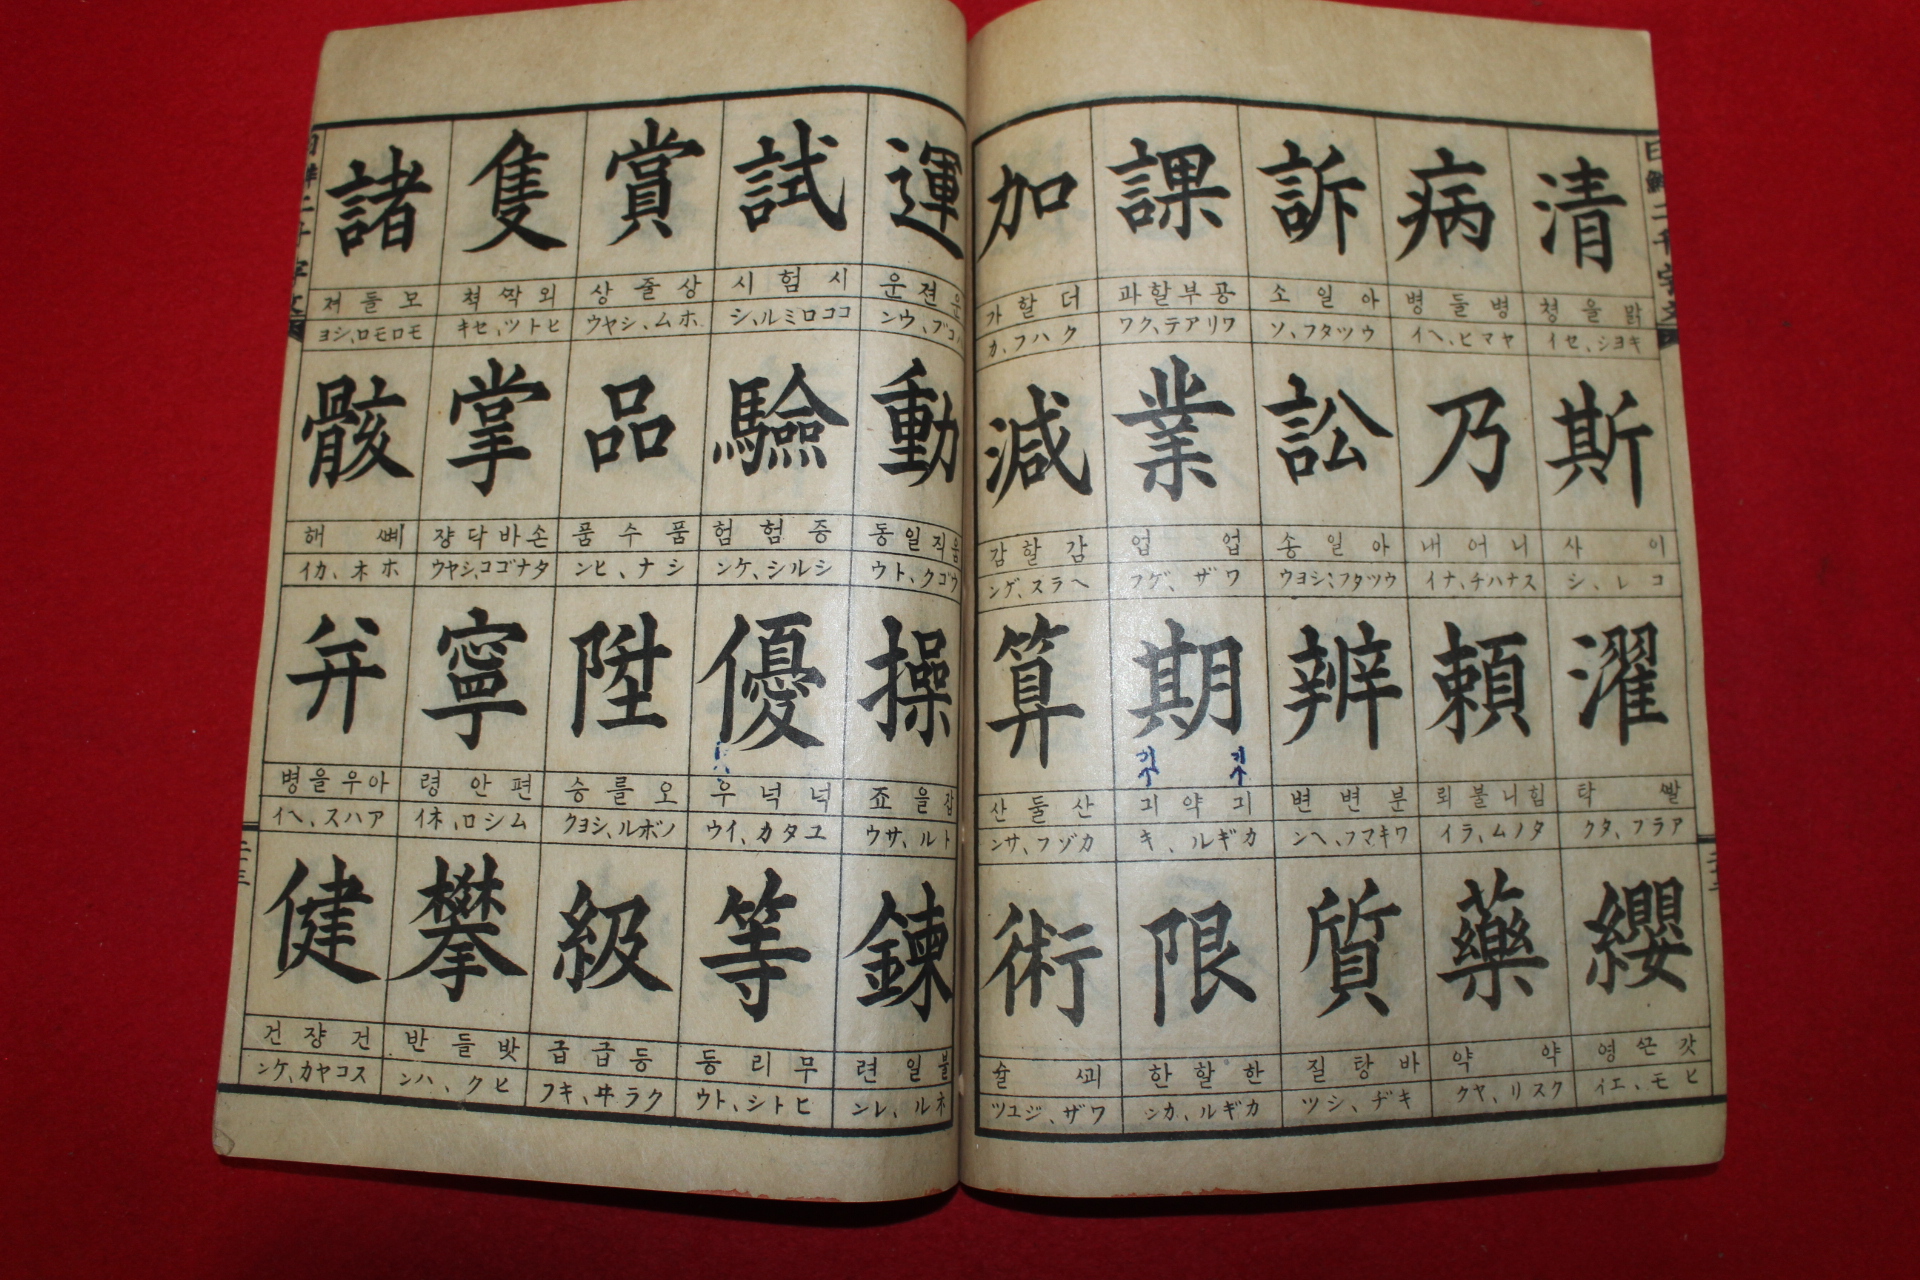 日鮮二千字文
清
맑을쳥
キヨシ、セイ
斯
이사
コレ、シ
濯
ᄲᅡᆯ탁
アラフ、タク
纓
갓ᄭᅳᆫ영
ヒモ、エイ
病
병들병
ヤマヒ、ヘイ
乃
니어내
スナハチ、ナイ
賴
힘니불뢰
タノム、ライ
藥
약약
クスリ、ヤク
訴
아일소
ウツタフ、ソ
訟
아일송
ウツタフ、シヨウ
辨
분변변
ワキマフ、ヘン
質
바탕질
キヂ、シツ
課
공부할과
ワリアテ、クワ
業
업업
ワザ、ゲフ
期
기 기
긔약긔
カギル、キ
限
한할한
カギル、カン
加
더할가
クハフ、カ
減
감할감
ヘラス、ゲン
算
산둘산
カゾフ、サン
術
ᄭᅬ슐
ワザ、ジユツ
運
운젼운
ハコブ、ウン
動
움직일동
ウゴク、トウ
操
잡을죠
トル、サウ
鍊
불일련
ネル、レン
試
시험시
ココロミル、シ
驗
증험험
シルシ、ケン
優
넉넉우
ユタカ、イウ
等
무리등
ヒトシ、トウ
賞
상줄상
ホム、シヤウ
品
품수품
シナ、ヒン
陞
오를승
ノボル、シヨク
級
등급급
クラヰ、キフ
隻
외짝쳑
ヒトツ、セキ
掌
손바닥쟝
タナゴコ、シヤウ
寧
편안령
ムシロ、ネイ
攀
밧들반
ヒク、ハン
諸
모둘져
モロモロ、シヨ
骸
ᄲᅧ해
ホネ、カイ
弁
아우을병
アハス、ヘイ
健
건쟝건
スコヤカ、ケン
日鮮二千字文
二十三